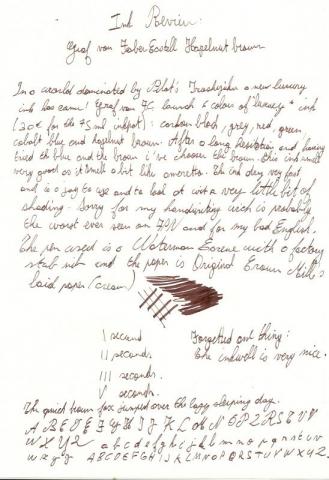 Ink Review:
Graf von Faber Castell Hazelnut brown
In a world dominated by Pilot's Iroshizuku a new luxury
ink has came! Graf von FC launch 6 colour of luxury ink
(20€ for the 75 ml inkpot): carbon black, grey, red, green,
cobalt blue and hazelnut brown. After a long hesitation and having
tried the blue and the brown i've choosen the brown. This ink smell
very good as it smell a bit like amaretto. The ink dry very fast
and is a joy to use and to look at with a very little bit of
shading. Sorry for my handwriting wich is probably
the worst ever seen on FPN and for my bad English.
The pen used is a Waterman Serene with a factory
stub nib and the paper is Original Crown Mill's
laid paper (cream)
I second
II seconds.
III seconds.
V seconds.
Forgetted one thing:
The inkwell is very nice.
The quick brown fox jumped over the lazy sleeping dog.
A B C D E F G H I J K L M N O P Q R S T U V
W X Y Z a b c d e f g h i j k l m n o p q r s t u v
w x y z A B C D E F G H I J K L M N O P Q R S T U V W X Y Z